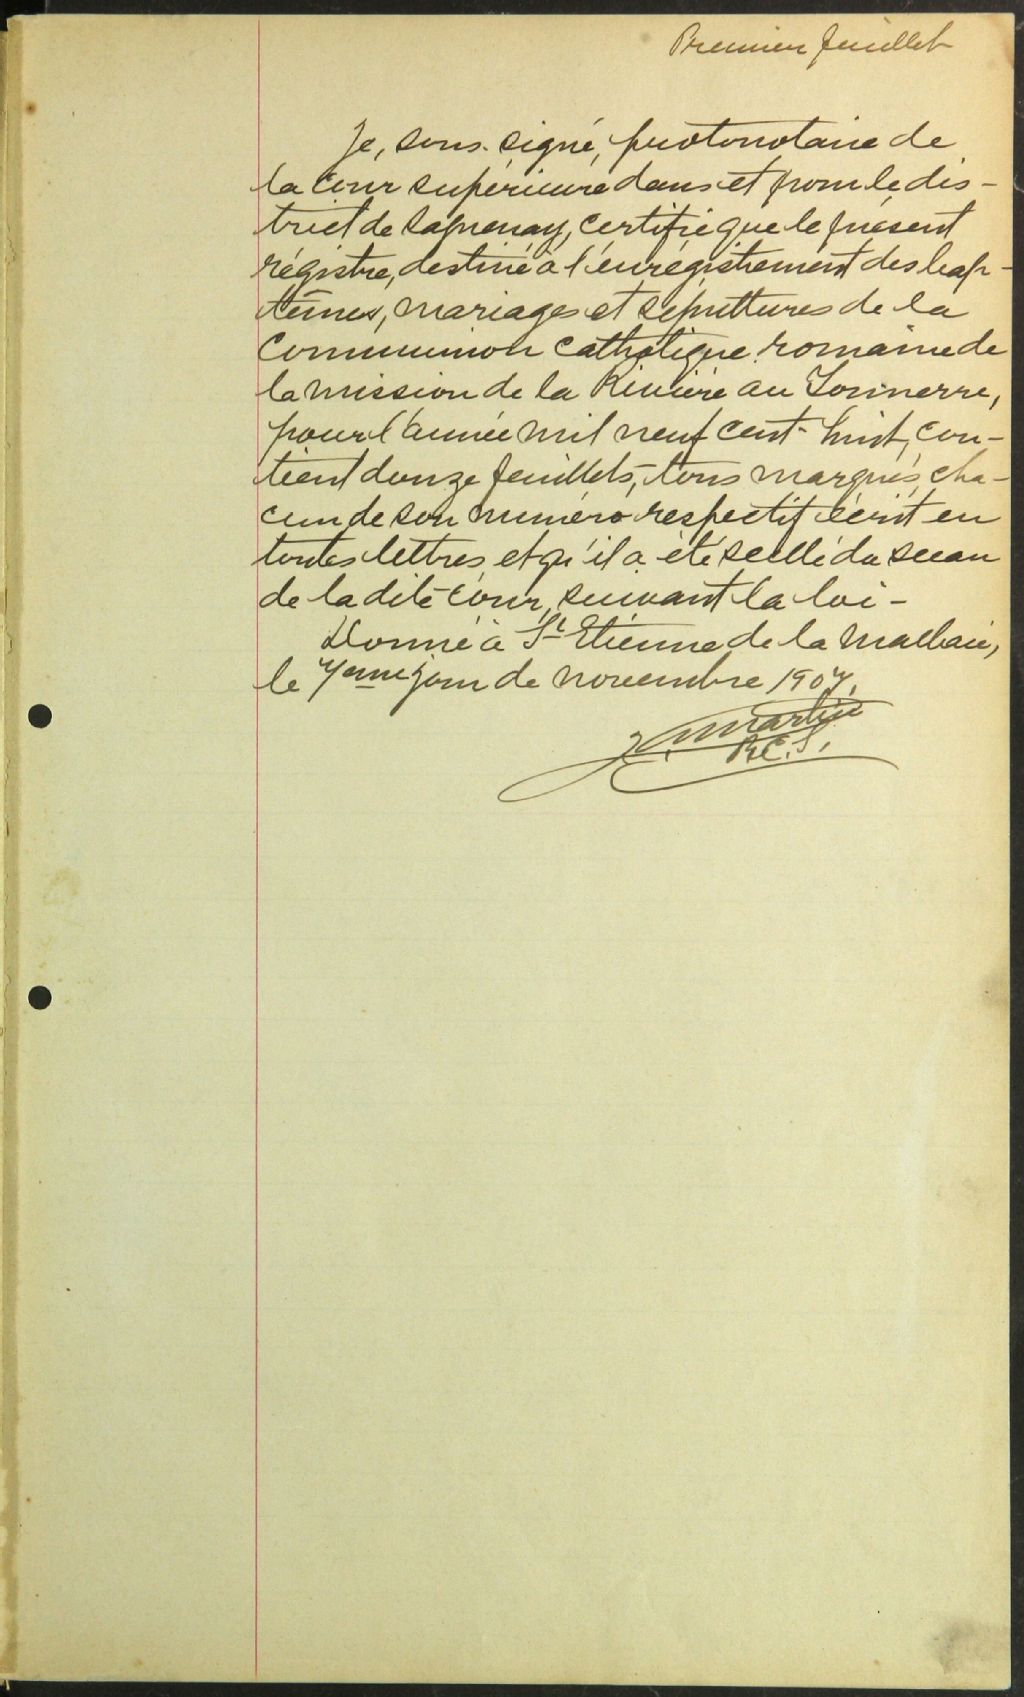 Premier feuillet
Je, sous-signé, protonotaire de
la cour supérieure dans et pour le dis-
trict de Saguenay, certifie que le présent
régistre, destiné à l'enrégistrement des bap-
têmes, mariages et sépultures de la
Communion Catholique romaine de
la mission de la Rivière au Tonnerre,
pour l'année mil neuf cent-huit, con-
tient douze feuillets, tous marqués, cha-
cun de son numéro respectif écrit en
toutes lettres et qu'il a été scellé du sceau
de la dite cour, suivant la loi-
Donné à St Etienne de la Malbaie,
le 7eme jour de novembre 1907.
Martin
P.C.S.